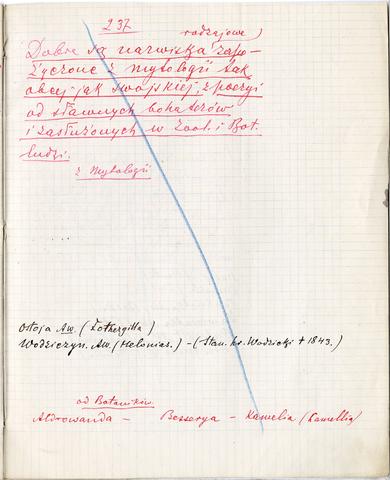 237
rodzajowe)
Dobre są nazwiska zapo-
życzone z mytologii tak
obcej jak swojskiej, z poezyi
od sławnych bohaterów
i zasłużonych w Zool. i Bot.
ludzi.
z Mytologii
Ostoja Aw. (Fothergilla)
Wodziczyn. Aw. (Helonias.) - (Stan. hr. Wodzicki + 1843.)
od Botaników
Aldrowanda - Besserya - Kamelia (Camellia)